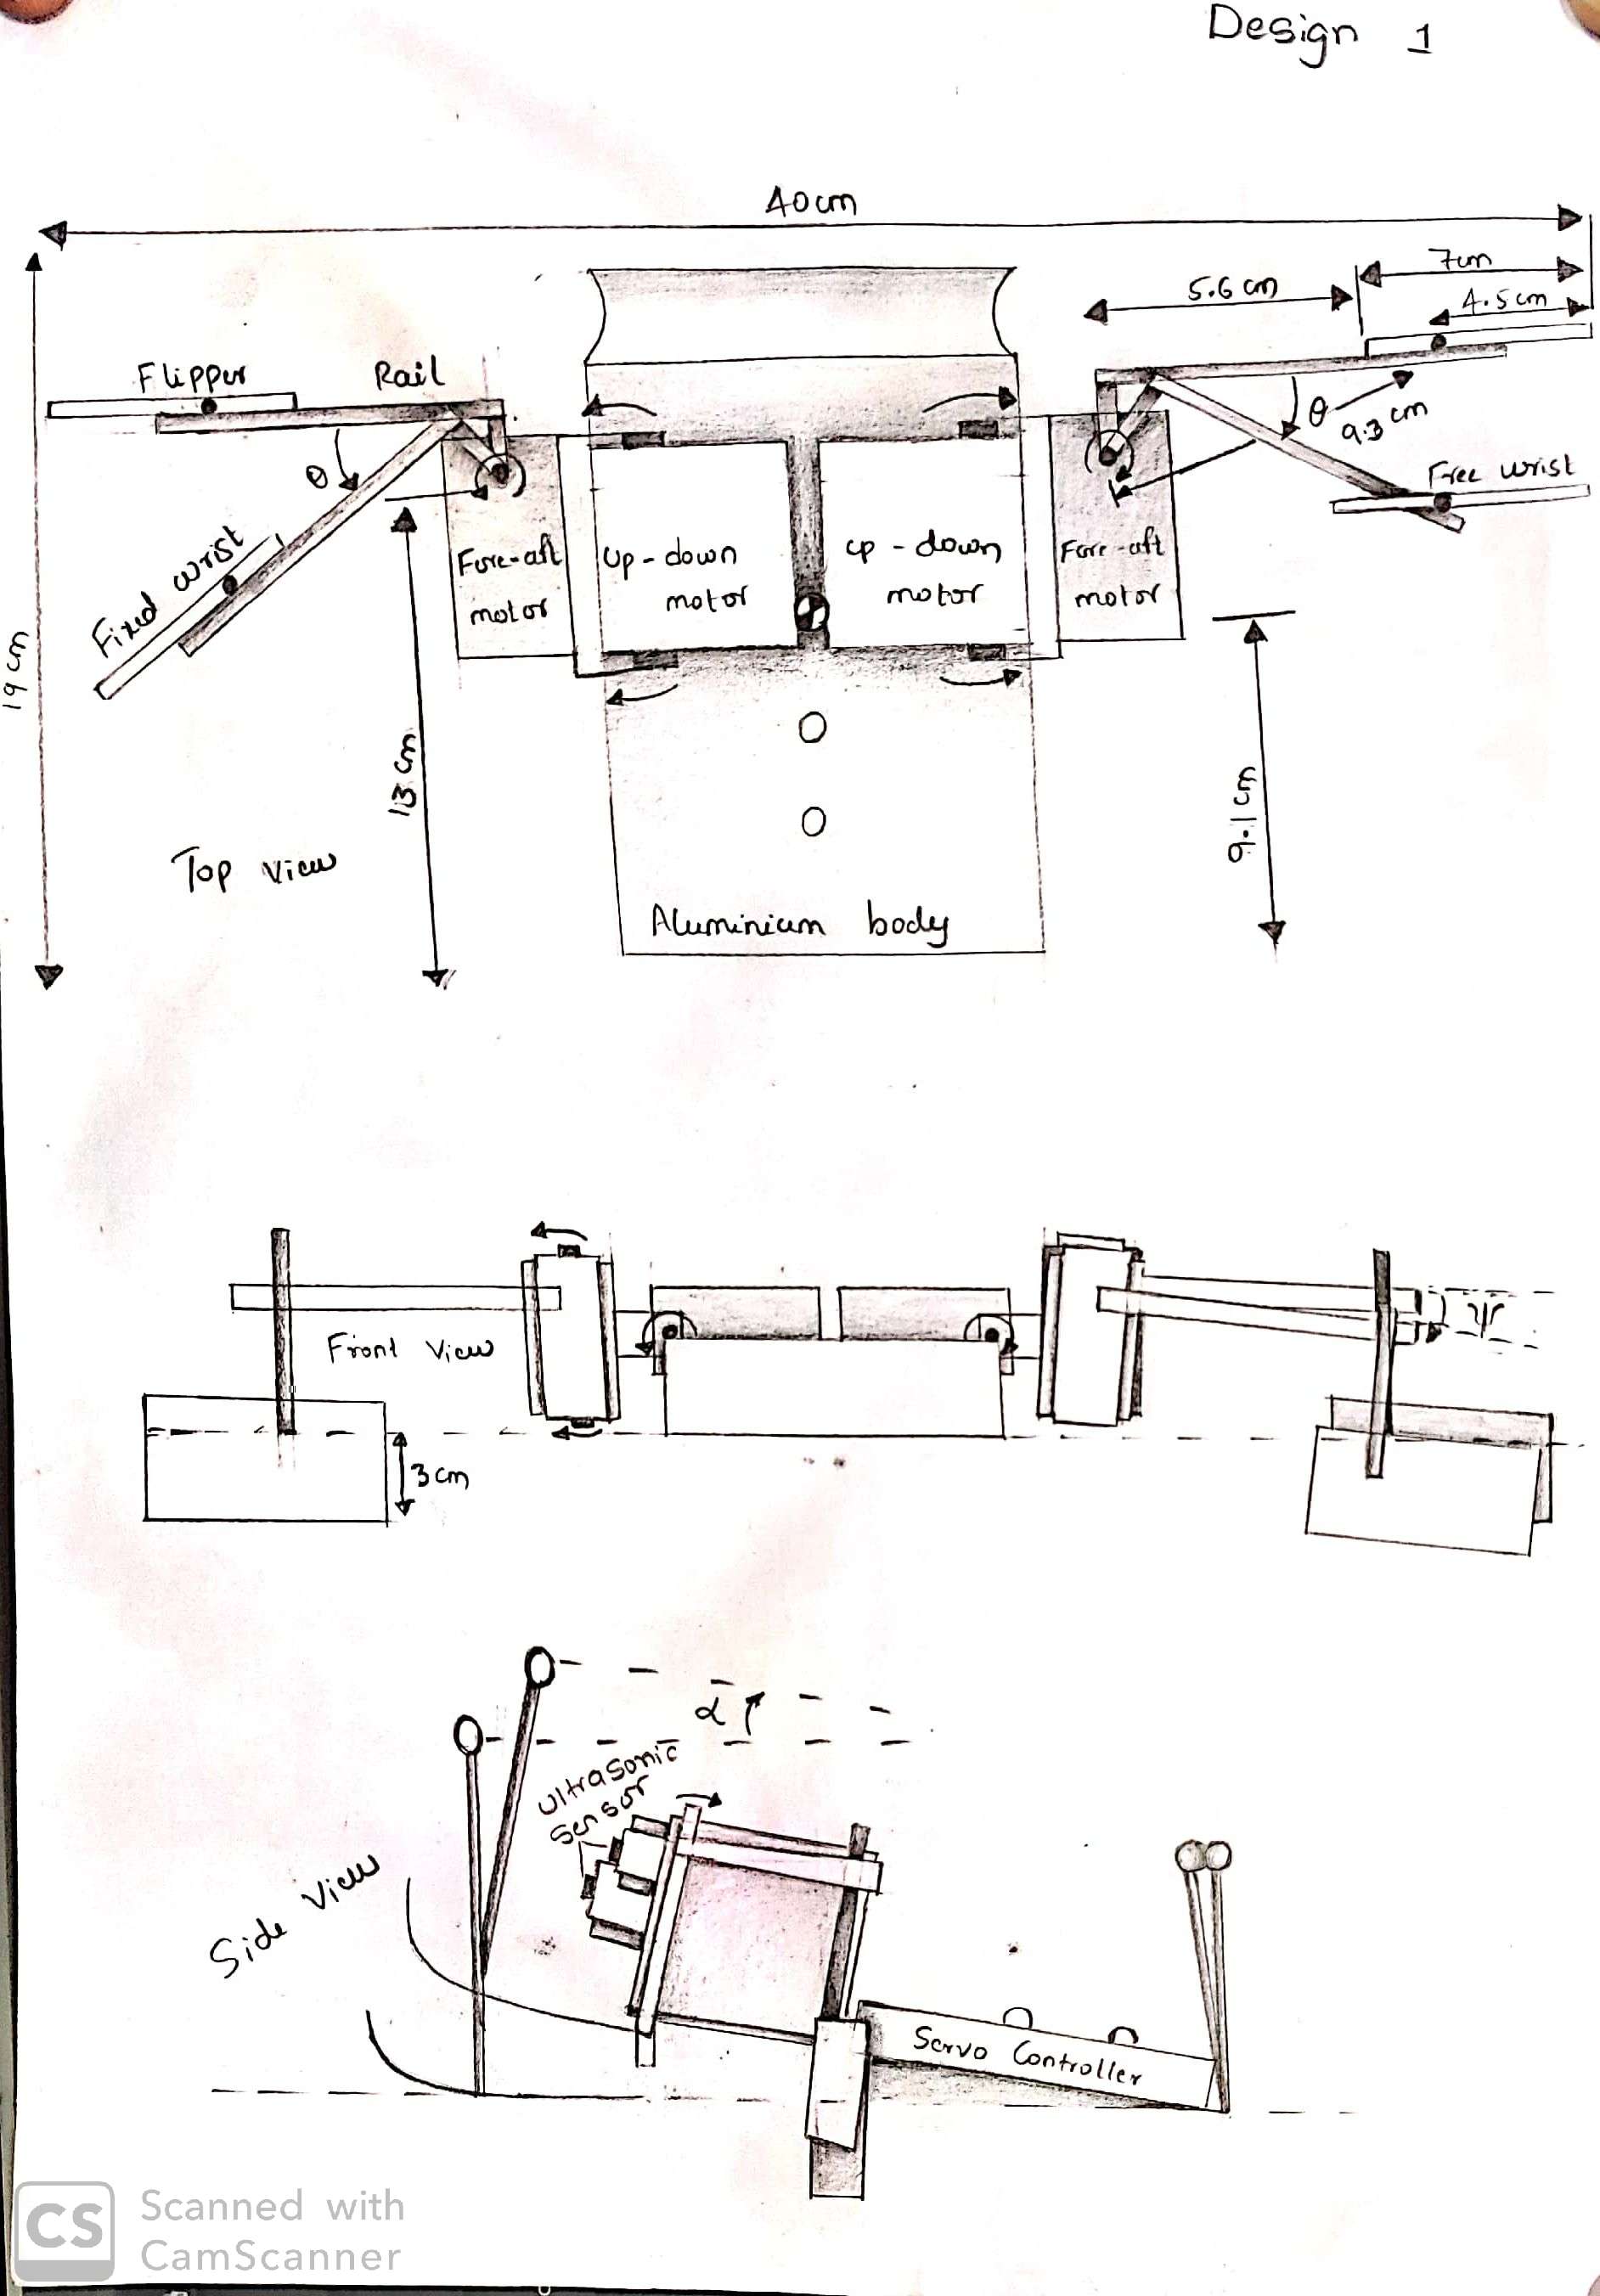 Design 1
40cm
7cm
5.6 cm
4.5 cm
Flipper
Rail
θ
θ
9.3 cm
Free wrist
Fixed wrist
Fore-aft
motor
Up-down
motor
up-down
motor
Fore-aft
motor
19 cm
13 cm
9.1 cm
Top view
Aluminium body
Front View
ψ
3 cm
α
Ultrasonic
Sensor
Side View
Servo Controller
CS
Scanned with
CamScanner